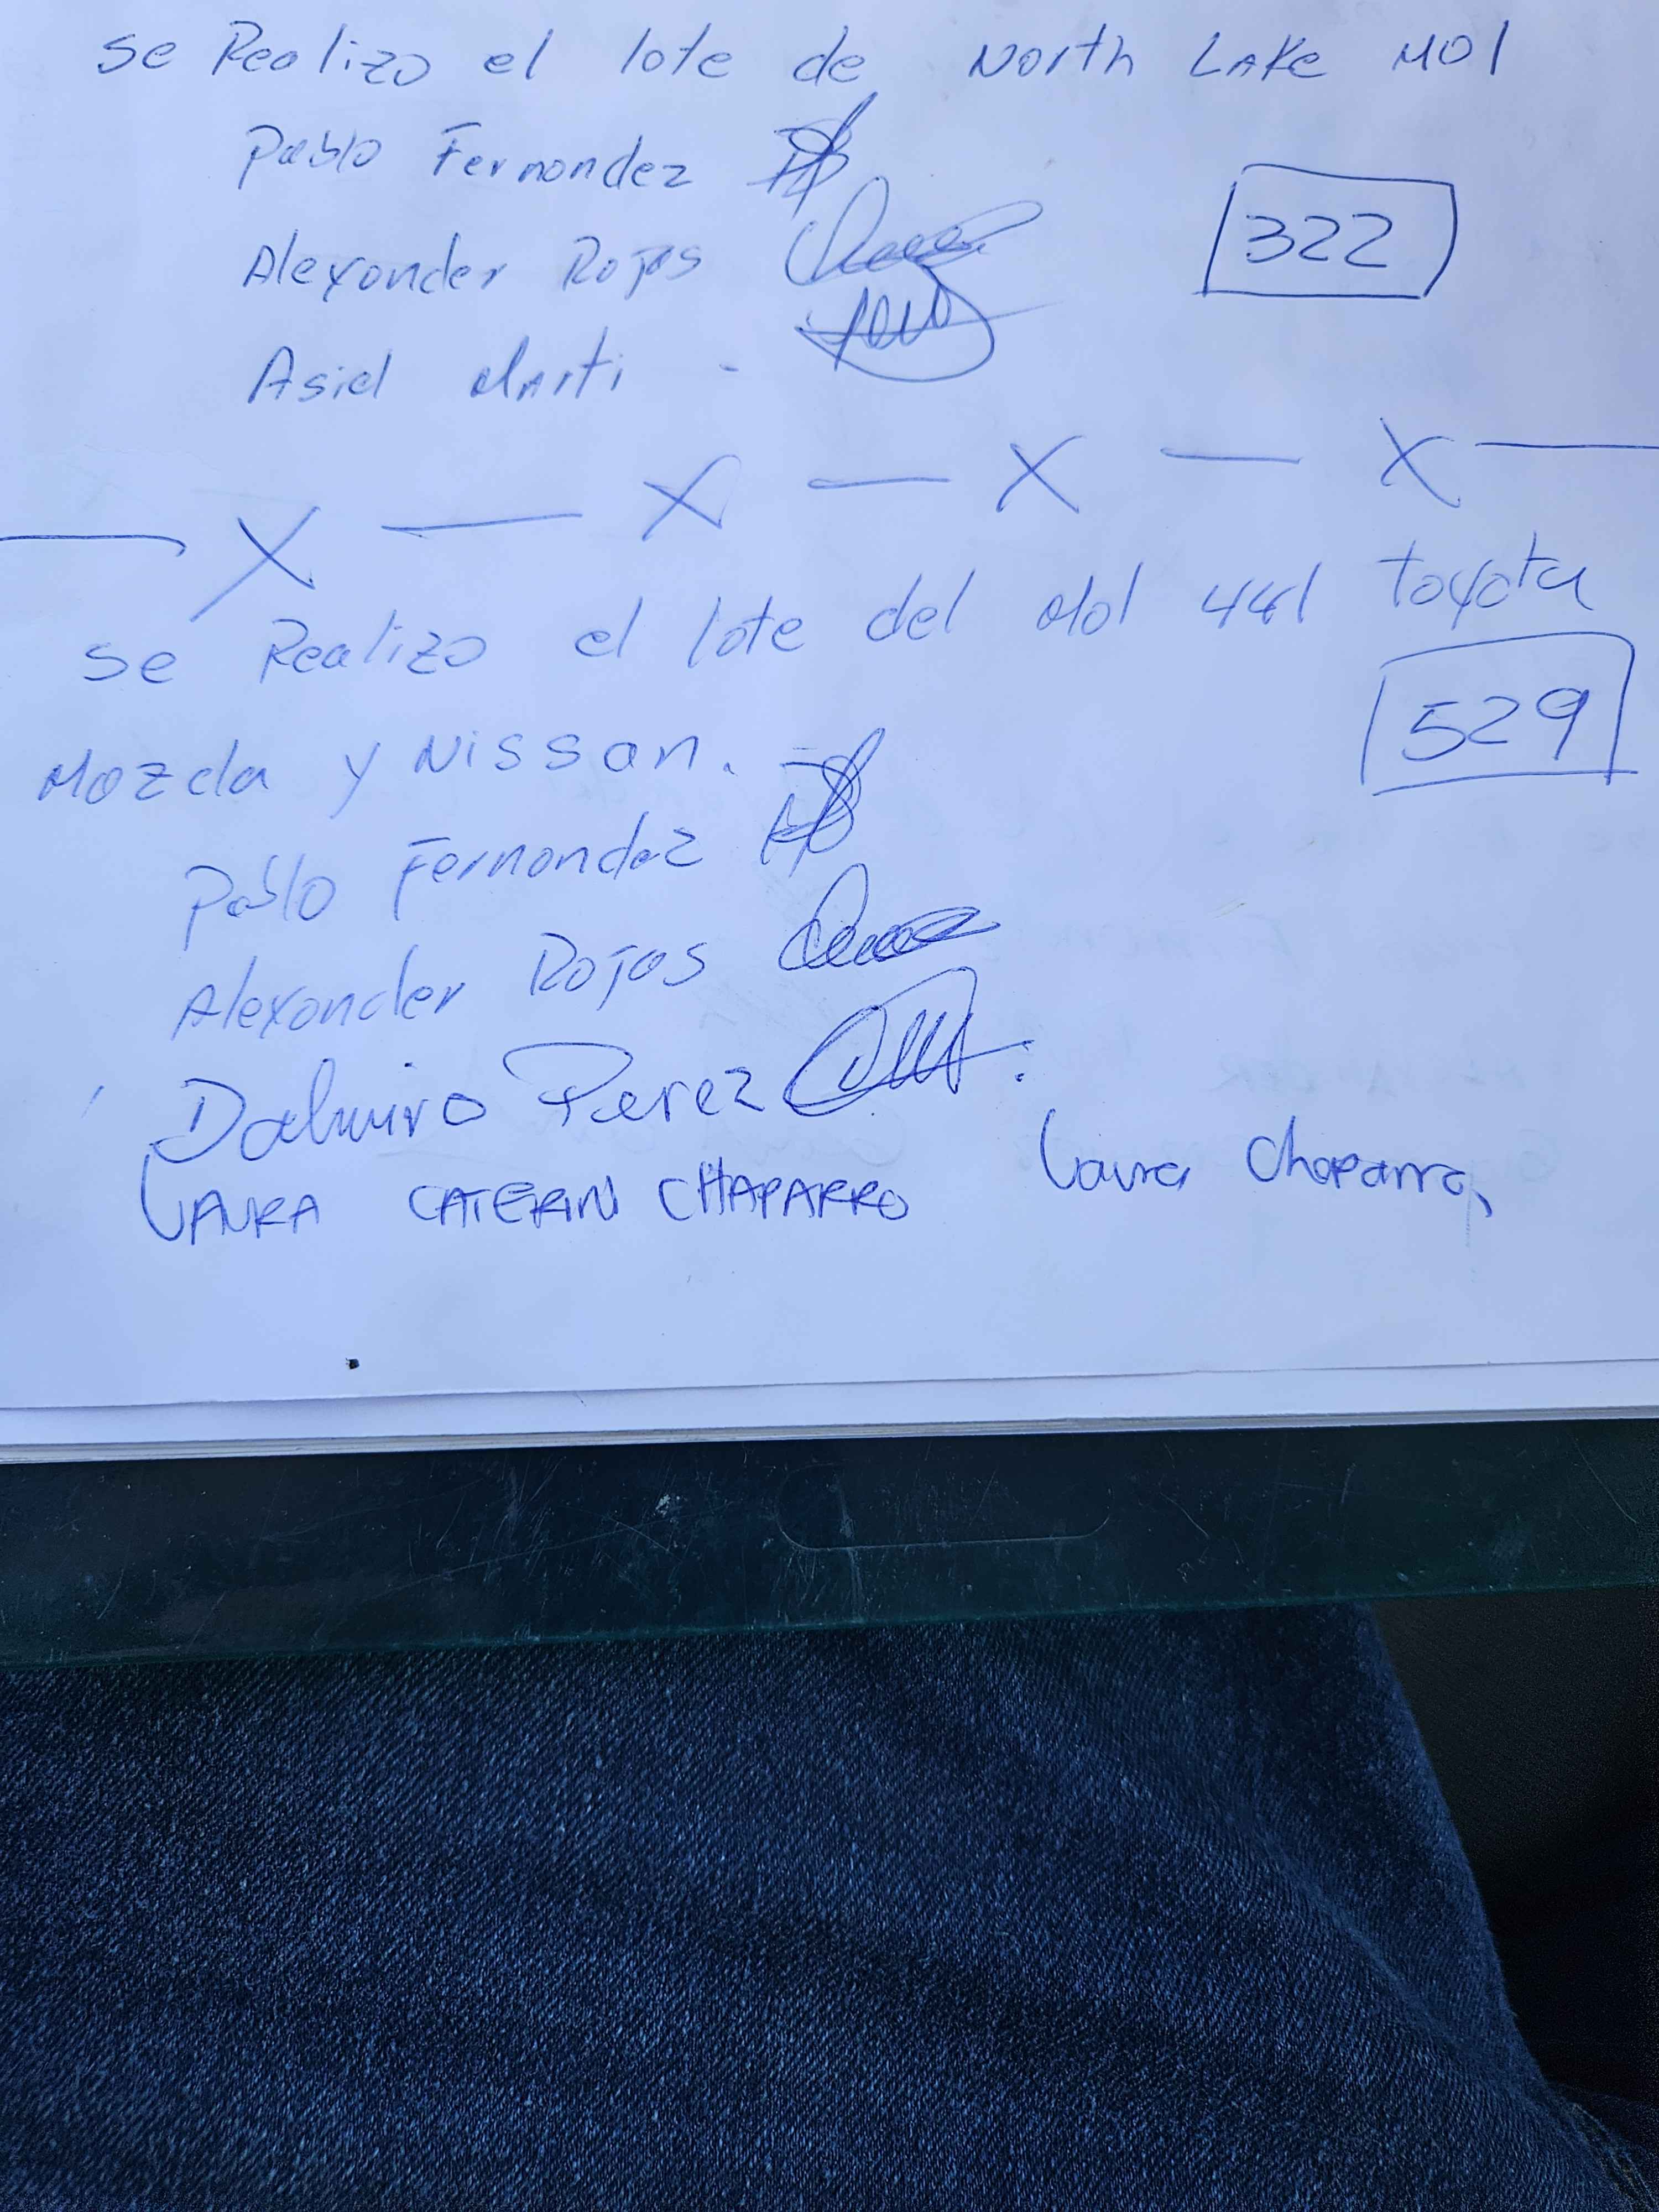 Se Realizo el lote de North Lake Mol
Pablo Fernandez
322
Alexander Rojas
Asiel Marti -
X — X — X — X
Se Realizo el lote del Mol 441 toyota
529
Mazda y Nissan.
Pablo Fernandez
Alexander Rojas
Dalmiro Perez
LAURA CATERIN CHAPARRO Laura Chaparro